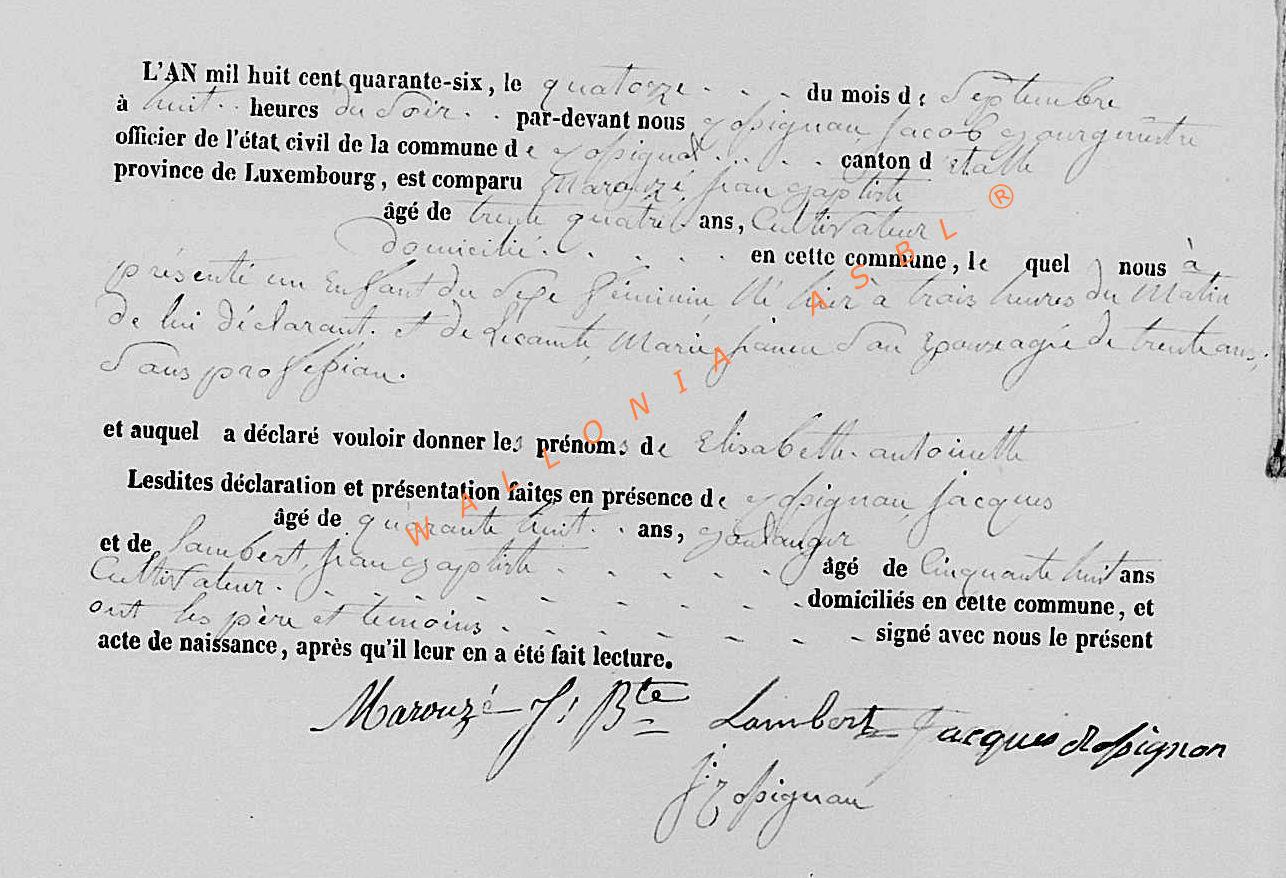 L'AN mil huit cent quarante-six, le quatorze . . . du mois de Septembre
à huit . . heures du Soir . . par-devant nous Rossignon Jacob Bourgmestre
officier de l'état civil de la commune de Rossignol . . . . canton d'étalle
province de Luxembourg, est comparu Marouzé jean Baptiste
âgé de trente quatre ans, Cultivateur
domicilié . . . . . en cette commune, le quel nous à
présenté un Enfant du Sexe féminin Né hier à trois heures du Matin
de lui déclarant. et de Lecomte, Marie, Son Epouse agée de trente ans,
Sans profession.
et auquel a déclaré vouloir donner les prénoms de Elisabeth. antoinette
Lesdites déclaration et présentation faites en présence de Rossignon Jacques
âgé de quarante huit . . ans, Boulanger
et de Lambert, jean Baptiste . . . . . âgé de Cinquante huit ans
Cultivateur . - - - - - - - - domiciliés en cette commune, et
ont les père et temoins - - - - - - signé avec nous le présent
acte de naissance, après qu'il leur en a été fait lecture.
Marouzé J Bte Lambert Jacques Rossignon
J: Rossignon
WALLONIA ASBL ®